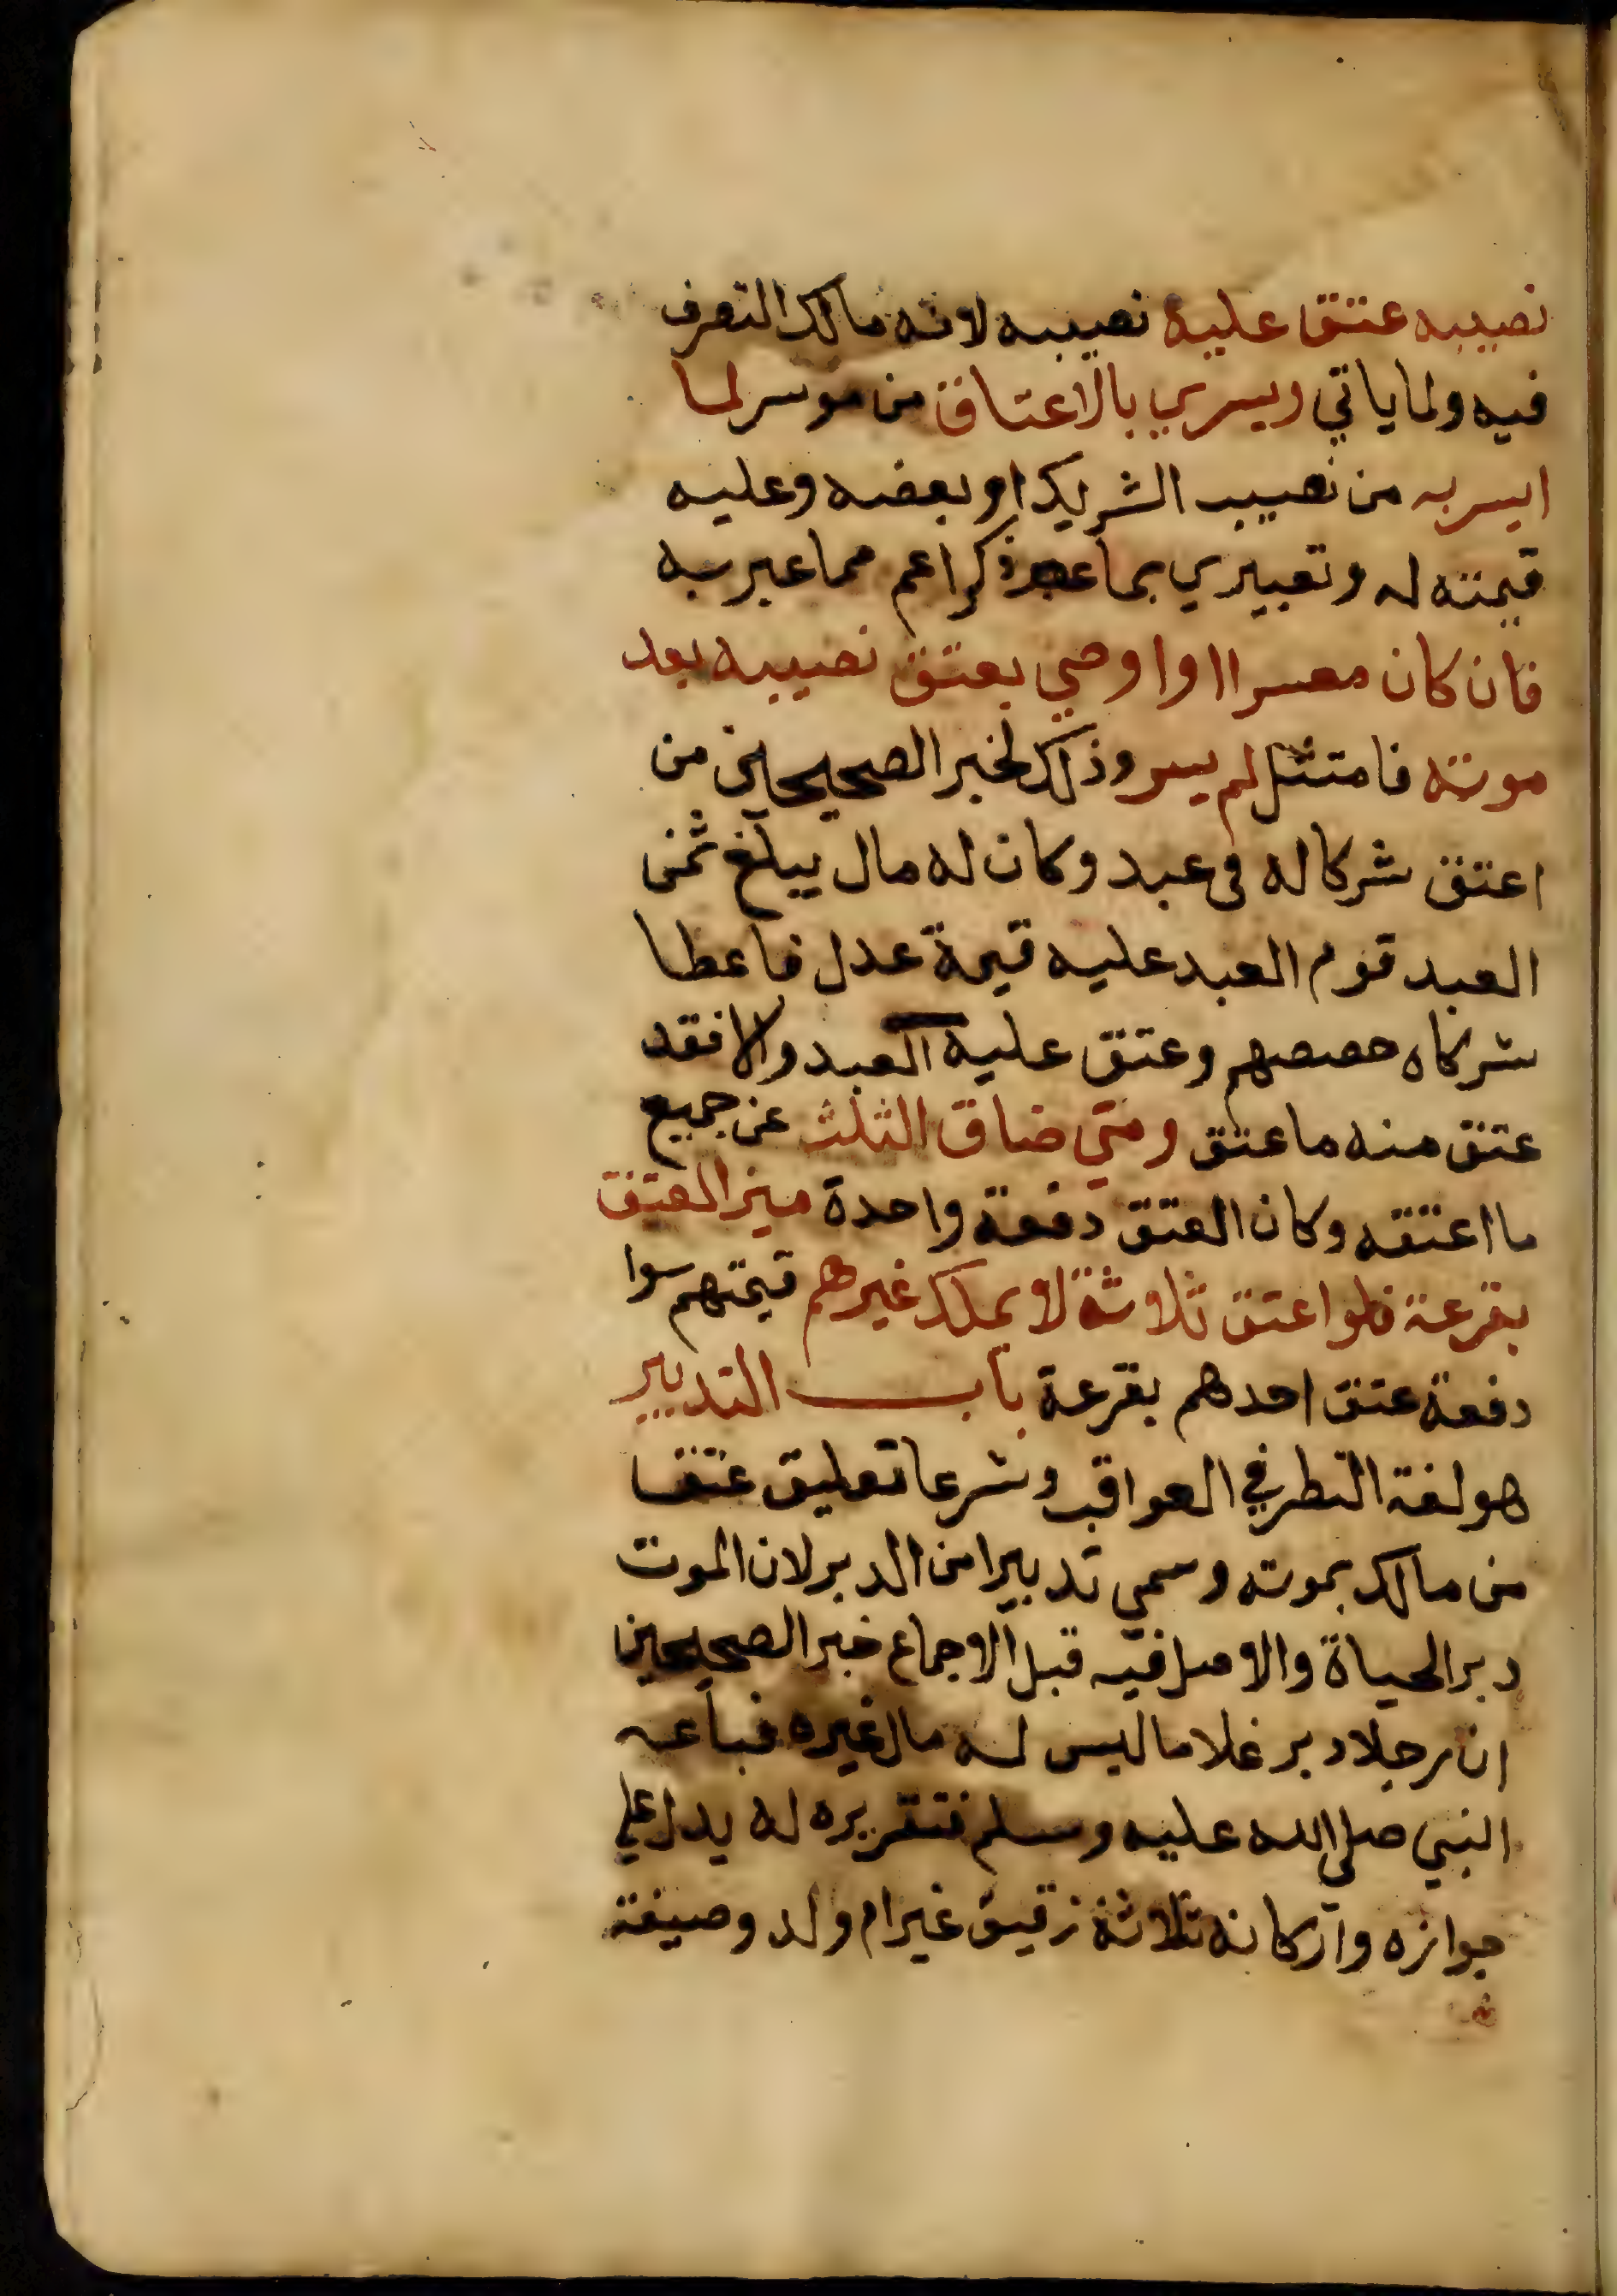 نصيبه عتق عليه نصيبه لانه مالك التصرف
فيه ولما ياتي ويسري بالاعتاق من موسر لما
ايسر به من نصيب الشريك او بعضه وعليه
قيمته له وتعبيري بما ذكر اعم مما عبر به
فان كان معسرا او اوصي بعتق نصيبه بعد
موته فامتثل لم يسر وذلك لخبر الصحيحين من
اعتق شركا له في عبد وكان له مال يبلغ ثمن
العبد قوم العبد عليه قيمة عدل فاعطا
شركاه حصصهم وعتق عليه العبد والا فقد
عتق منه ما عتق ومتي ضاق الثلث عن جميع
ما اعتقه وكان العتق دفعة واحدة ميز العتق
بقرعة فلو اعتق ثلاثة لا يملك غيرهم قيمتهم سوا
دفعة عتق احدهم بقرعة باب التدبير
هو لغة النظر في العواقب وشرعا تعليق عتق
من مالك بموته وسمي تدبيرا من الدبر لان الموت
دبر الحياة والاصل فيه قبل الاجماع خبر الصحيحين
ان رجلا دبر غلاما ليس له مال غيره فباعه
النبي صلى الله عليه وسلم فتقريره له يدل علي
جوازه واركانه ثلاثة رقيق غير ام ولد وصيغة